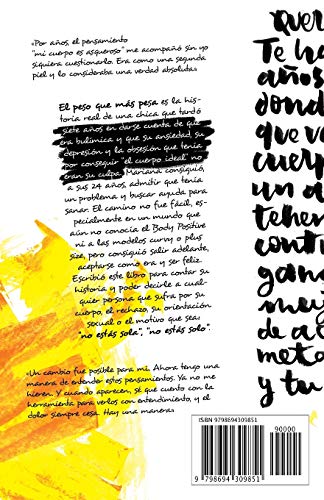 «Por años, el pensamiento
"mi cuerpo es asqueroso" me acompañó sin yo
siquiera cuestionarlo. Era como una segunda
piel y lo consideraba una verdad absoluta»
El peso que más pesa es la his-
toria real de una chica que tardó
siete años en darse cuenta de que
era bulímica y que su ansiedad, su
depresión y la obsesión que tenía
por conseguir "el cuerpo ideal" no
eran su culpa. Mariana consiguió,
a sus 24 años, admitir que tenía
un problema y buscar ayuda para
sanar. El camino no fue fácil, es-
pecialmente en un mundo que
aún no conocía el Body Positive
ni a las modelos curvy o plus
size, pero consiguió salir adelante,
aceptarse como era y ser feliz.
Escribió este libro para contar su
historia y poder decirle a cual-
quier persona que sufra por su
cuerpo, el rechazo, su orientación
sexual o el motivo que sea:
"no estás sola", "no estás solo".
«Un cambio fue posible para mí. Ahora tengo una
manera de entender estos pensamientos. Ya no me
hieren. Y cuando aparecen, sé que cuento con la
herramienta para verlos con entendimiento, y el
dolor siempre cesa. Hay una manera»
Quer
Te ha
años
dond
que ve
cuerp
un d
tehen
conti
gana
muj
de a
meta
y tu
ISBN 9798694309851
90000
9 798694 309851